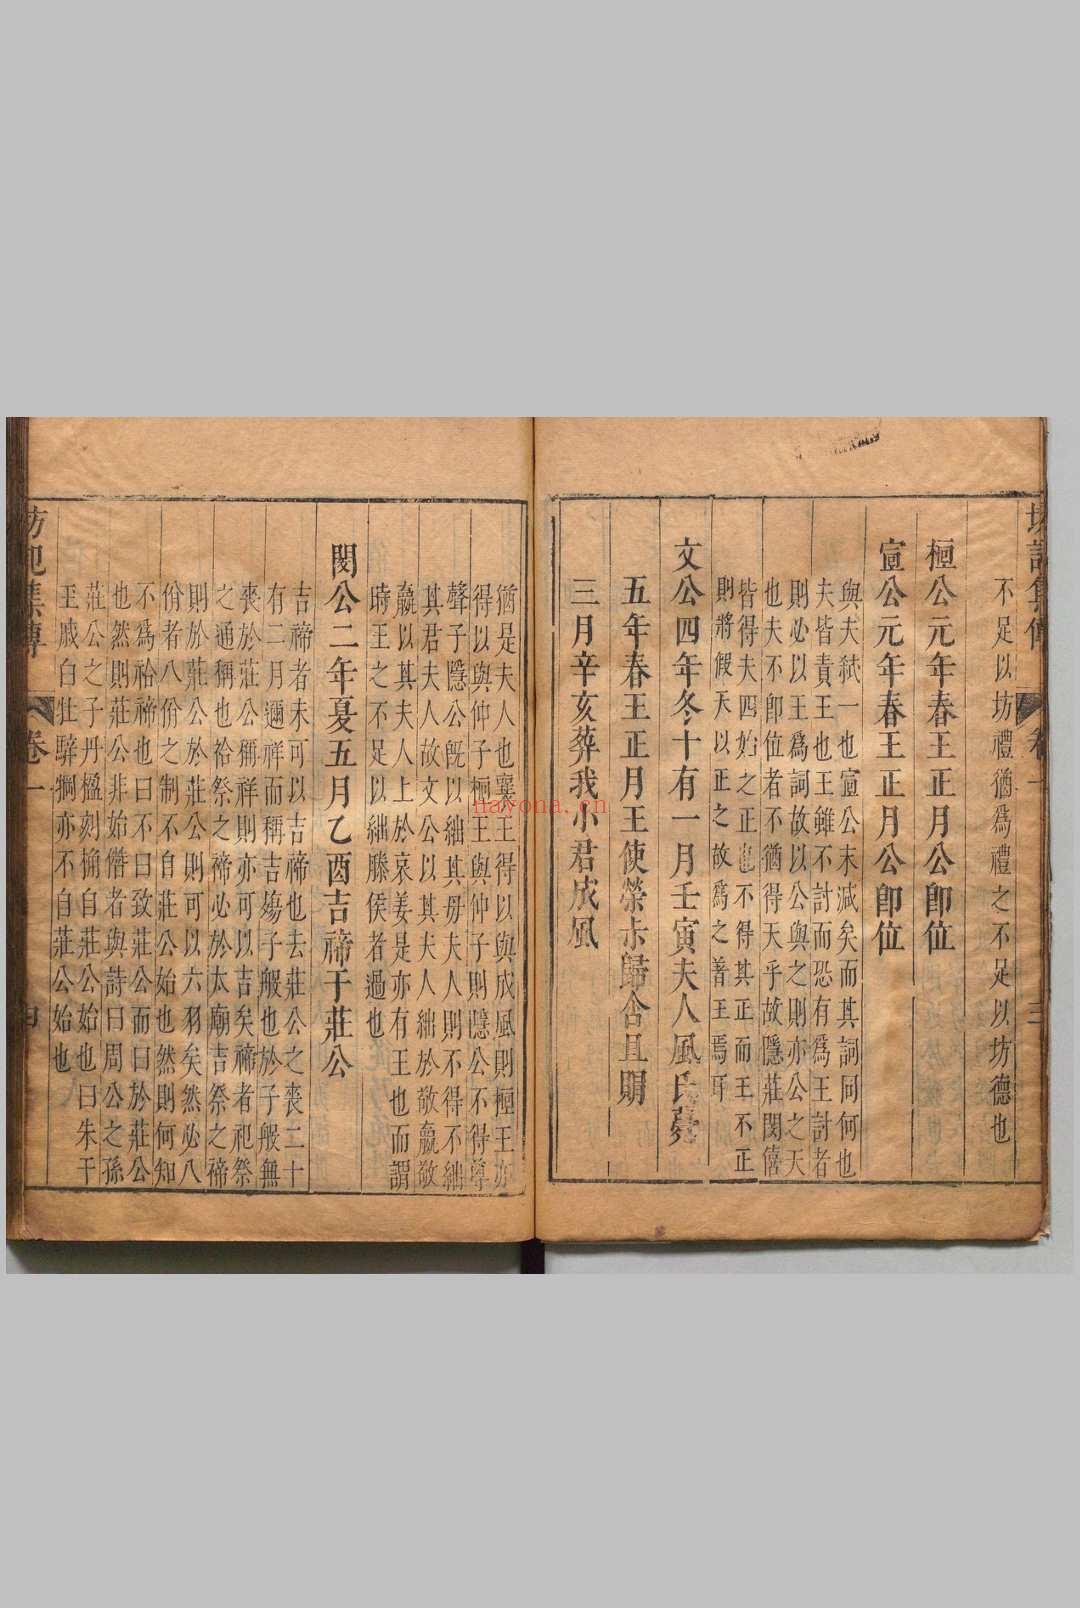 坊記集傳 卷一 三
不足以坊禮猶爲禮之不足以坊德也
桓公元年春王正月公卽位
宣公元年春王正月公卽位
與夫弑一也宣公末減矣而其詞同何也
夫皆責王也王雖不討而恐有爲王討者
則必以王爲詞故以公與之則亦公之天
也夫不卽位者不猶得天乎故隱莊閔僖
皆得夫四始之正也不得其正而王不正
則將假天以正之故爲之著王焉耳
文公四年冬十有一月壬寅夫人風氏薨
五年春王正月王使榮叔歸含且賵
三月辛亥葬我小君成風
猶是夫人也襄王得以與成風則桓王亦
得以與仲子桓王與仲子則隱公不得尊
聲子隱公旣以絀其毋夫人則不得不絀
其君夫人故文公以其夫人絀於敬嬴敬
嬴以其夫人上於哀姜是亦有王也而謂
時王之不足以絀滕侯者過也
閔公二年夏五月乙酉吉禘于莊公
吉禘者未可以吉禘也去莊公之喪二十
有二月邇祥而稱吉殤子般也於子般無
喪於莊公稱祥則亦可以吉矣禘者祀祭
之通稱也祫祭之禘必於太廟吉祭之禘
則於莊公於莊公則可以六羽矣然必八
佾者八佾之制不自莊公始也然則何知
不爲祫禘也曰不曰致莊公而曰於莊公
也然則莊公非始僭者與詩曰周公之孫
莊公之子丹楹刻桷自莊公始也曰朱干
玉戚白牡騂犅亦不自莊公始也
坊記集傳 卷一 四
nayona.cn